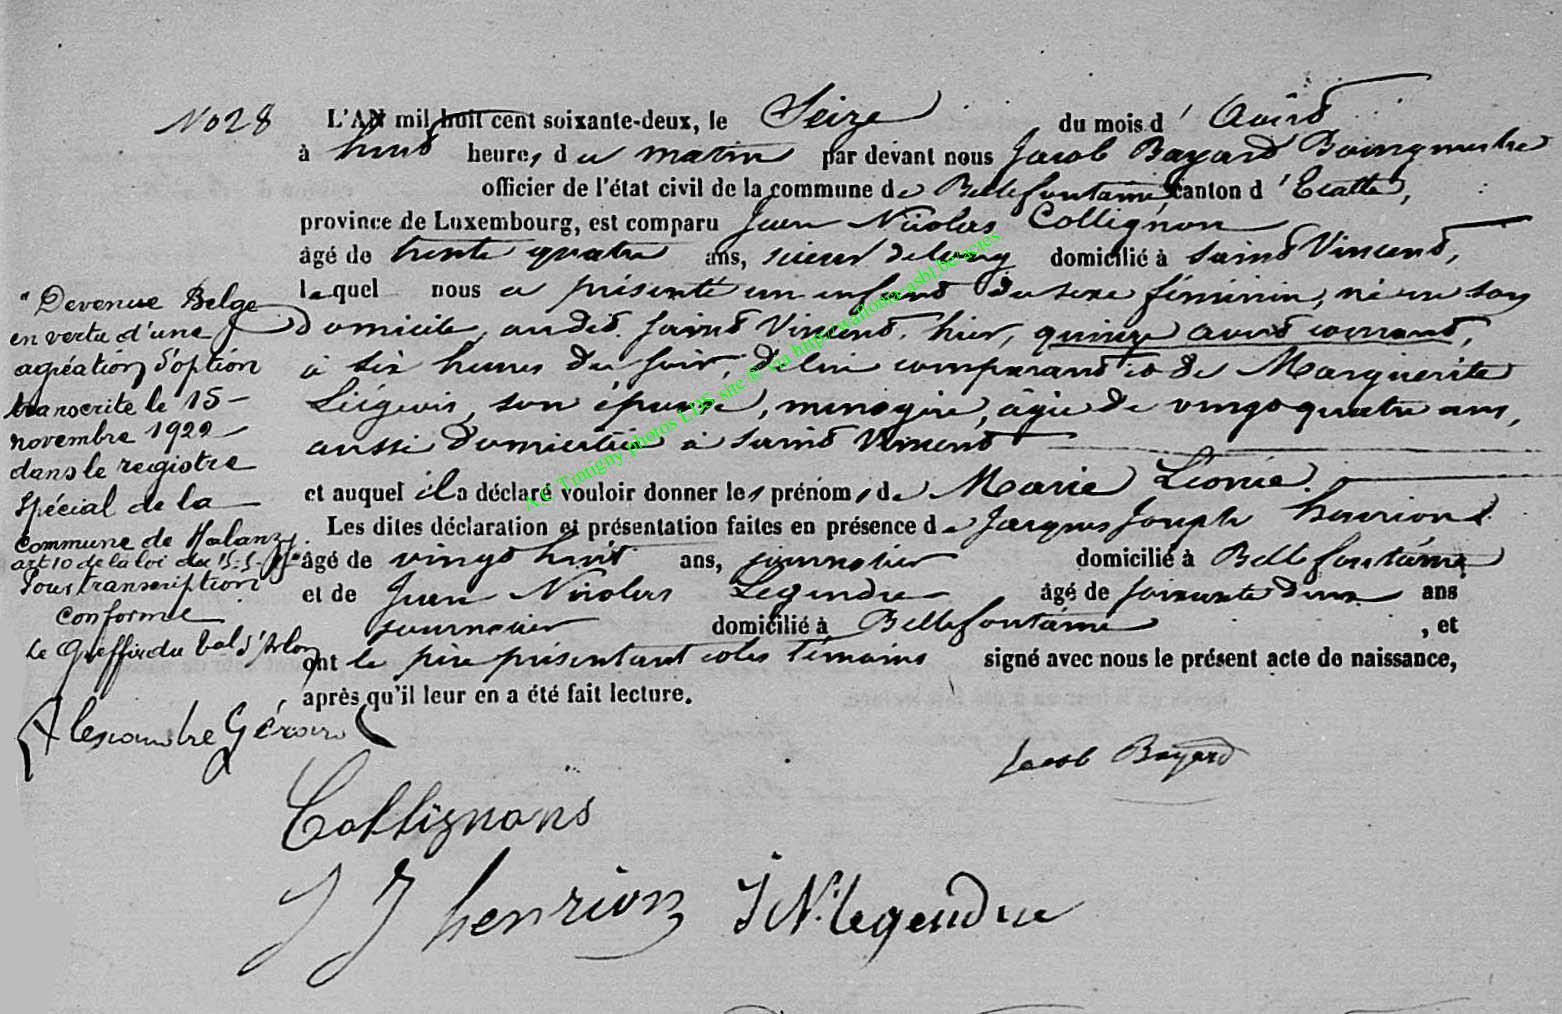 No 28
L'AN mil huit cent soixante-deux, le Seize du mois d' Août
à huit heures, du matin par devant nous Jacob Bayard Bourgmestre
officier de l'état civil de la commune de Bellefontaine, canton d'Etalle,
province de Luxembourg, est comparu Jean Nicolas Collignon
âgé de trente quatre ans, scieur de long domicilié à Saint Vincent,
lequel nous a présenté un enfant du sexe féminin, né en son
domicile, audit Saint Vincent, hier, quinze août courant,
à six heures du soir, de lui comparant et de Marguerite
Liégeois, son épouse, ménagère, âgée de vingt quatre ans,
aussi domiciliée à Saint Vincent
et auquel il a déclaré vouloir donner les prénoms de Marie Léonie.
Les dites déclaration et présentation faites en présence de Jacques Joseph henrion
âgé de vingt huit ans, journalier domicilié à Bellefontaine
et de Jean Nicolas Legendre âgé de soixante deux ans
journalier domicilié à Bellefontaine, et
ont le père présentant et les témoins signé avec nous le présent acte de naissance,
après qu'il leur en a été fait lecture.
"Devenue Belge
en vertu d'une
agréation d'option
transcrite le 15
novembre 1922
dans le registre
Spécial de la
commune de Halanzy.
art 10 de la loi du 15-5-
Pour transcription
conforme
Le Greffier du tral d'Arlon
Alexandre Gérard
Jacob Bayard
Collignons
J J henrion J N. legendre
A.C. Tintigny photos LDS site © via http://wallonica.asbl.be/actes